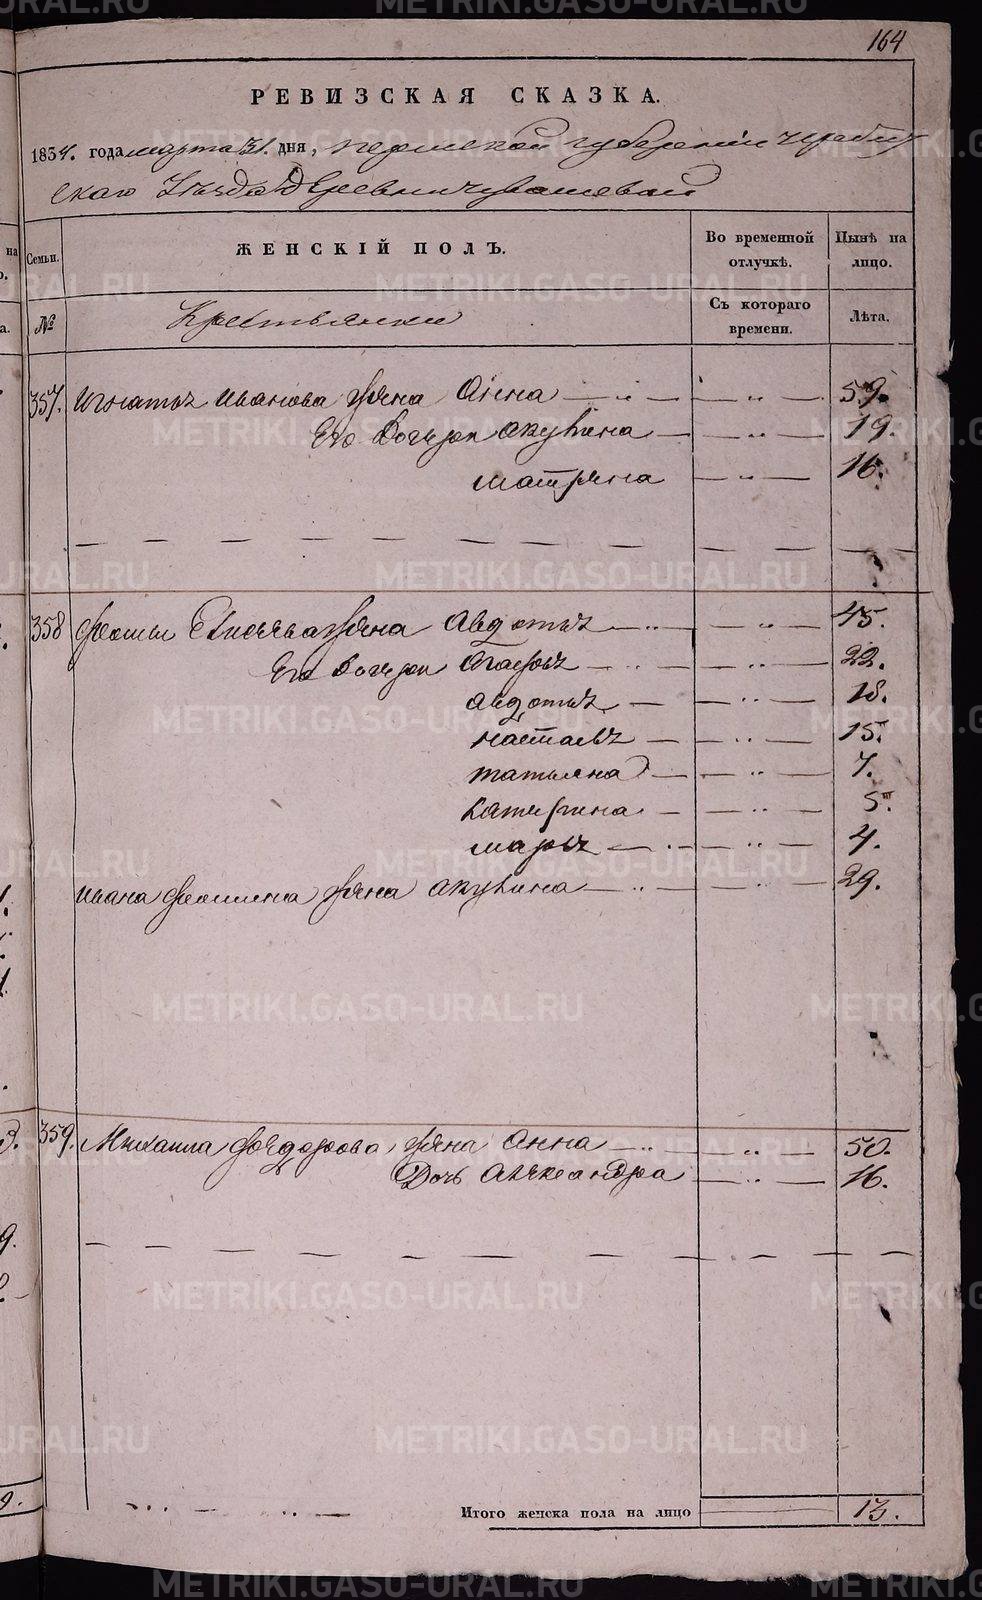 164
РЕВИЗСКАЯ СКАЗКА.
1834. года марта 31. дня, пермской губернии
скаго Уѣзда Деревни
Семьи. ЖЕНСКІЙ ПОЛЪ. Во временной отлучкѣ. Нынѣ на лицо.
№ Крестьянки Съ котораго времени. Лѣта.
357. Игнатья Иванова жена Анна — „ — — „ — 59.
Его дочери Акулина — — „ — 19.
матрена — „ — 16.
358 Фомы Елисѣева жена Авдотья — „ — — „ — 45.
Его дочери Агафья — „ — — „ — 22.
авдотья — — „ — 18.
настасья — — „ — 15.
татьяна — — „ — 7.
катерина — — „ — 5.
марья — „ — — „ — 4.
Ивана Фомина жена акулина — „ — — „ — 29.
359. Михаила Фёдорова жена Анна — „ — — „ — 50.
Дочь Александра — — „ — 16.
Итого женска пола на лицо 13.
METRIKI.GASO-URAL.RU